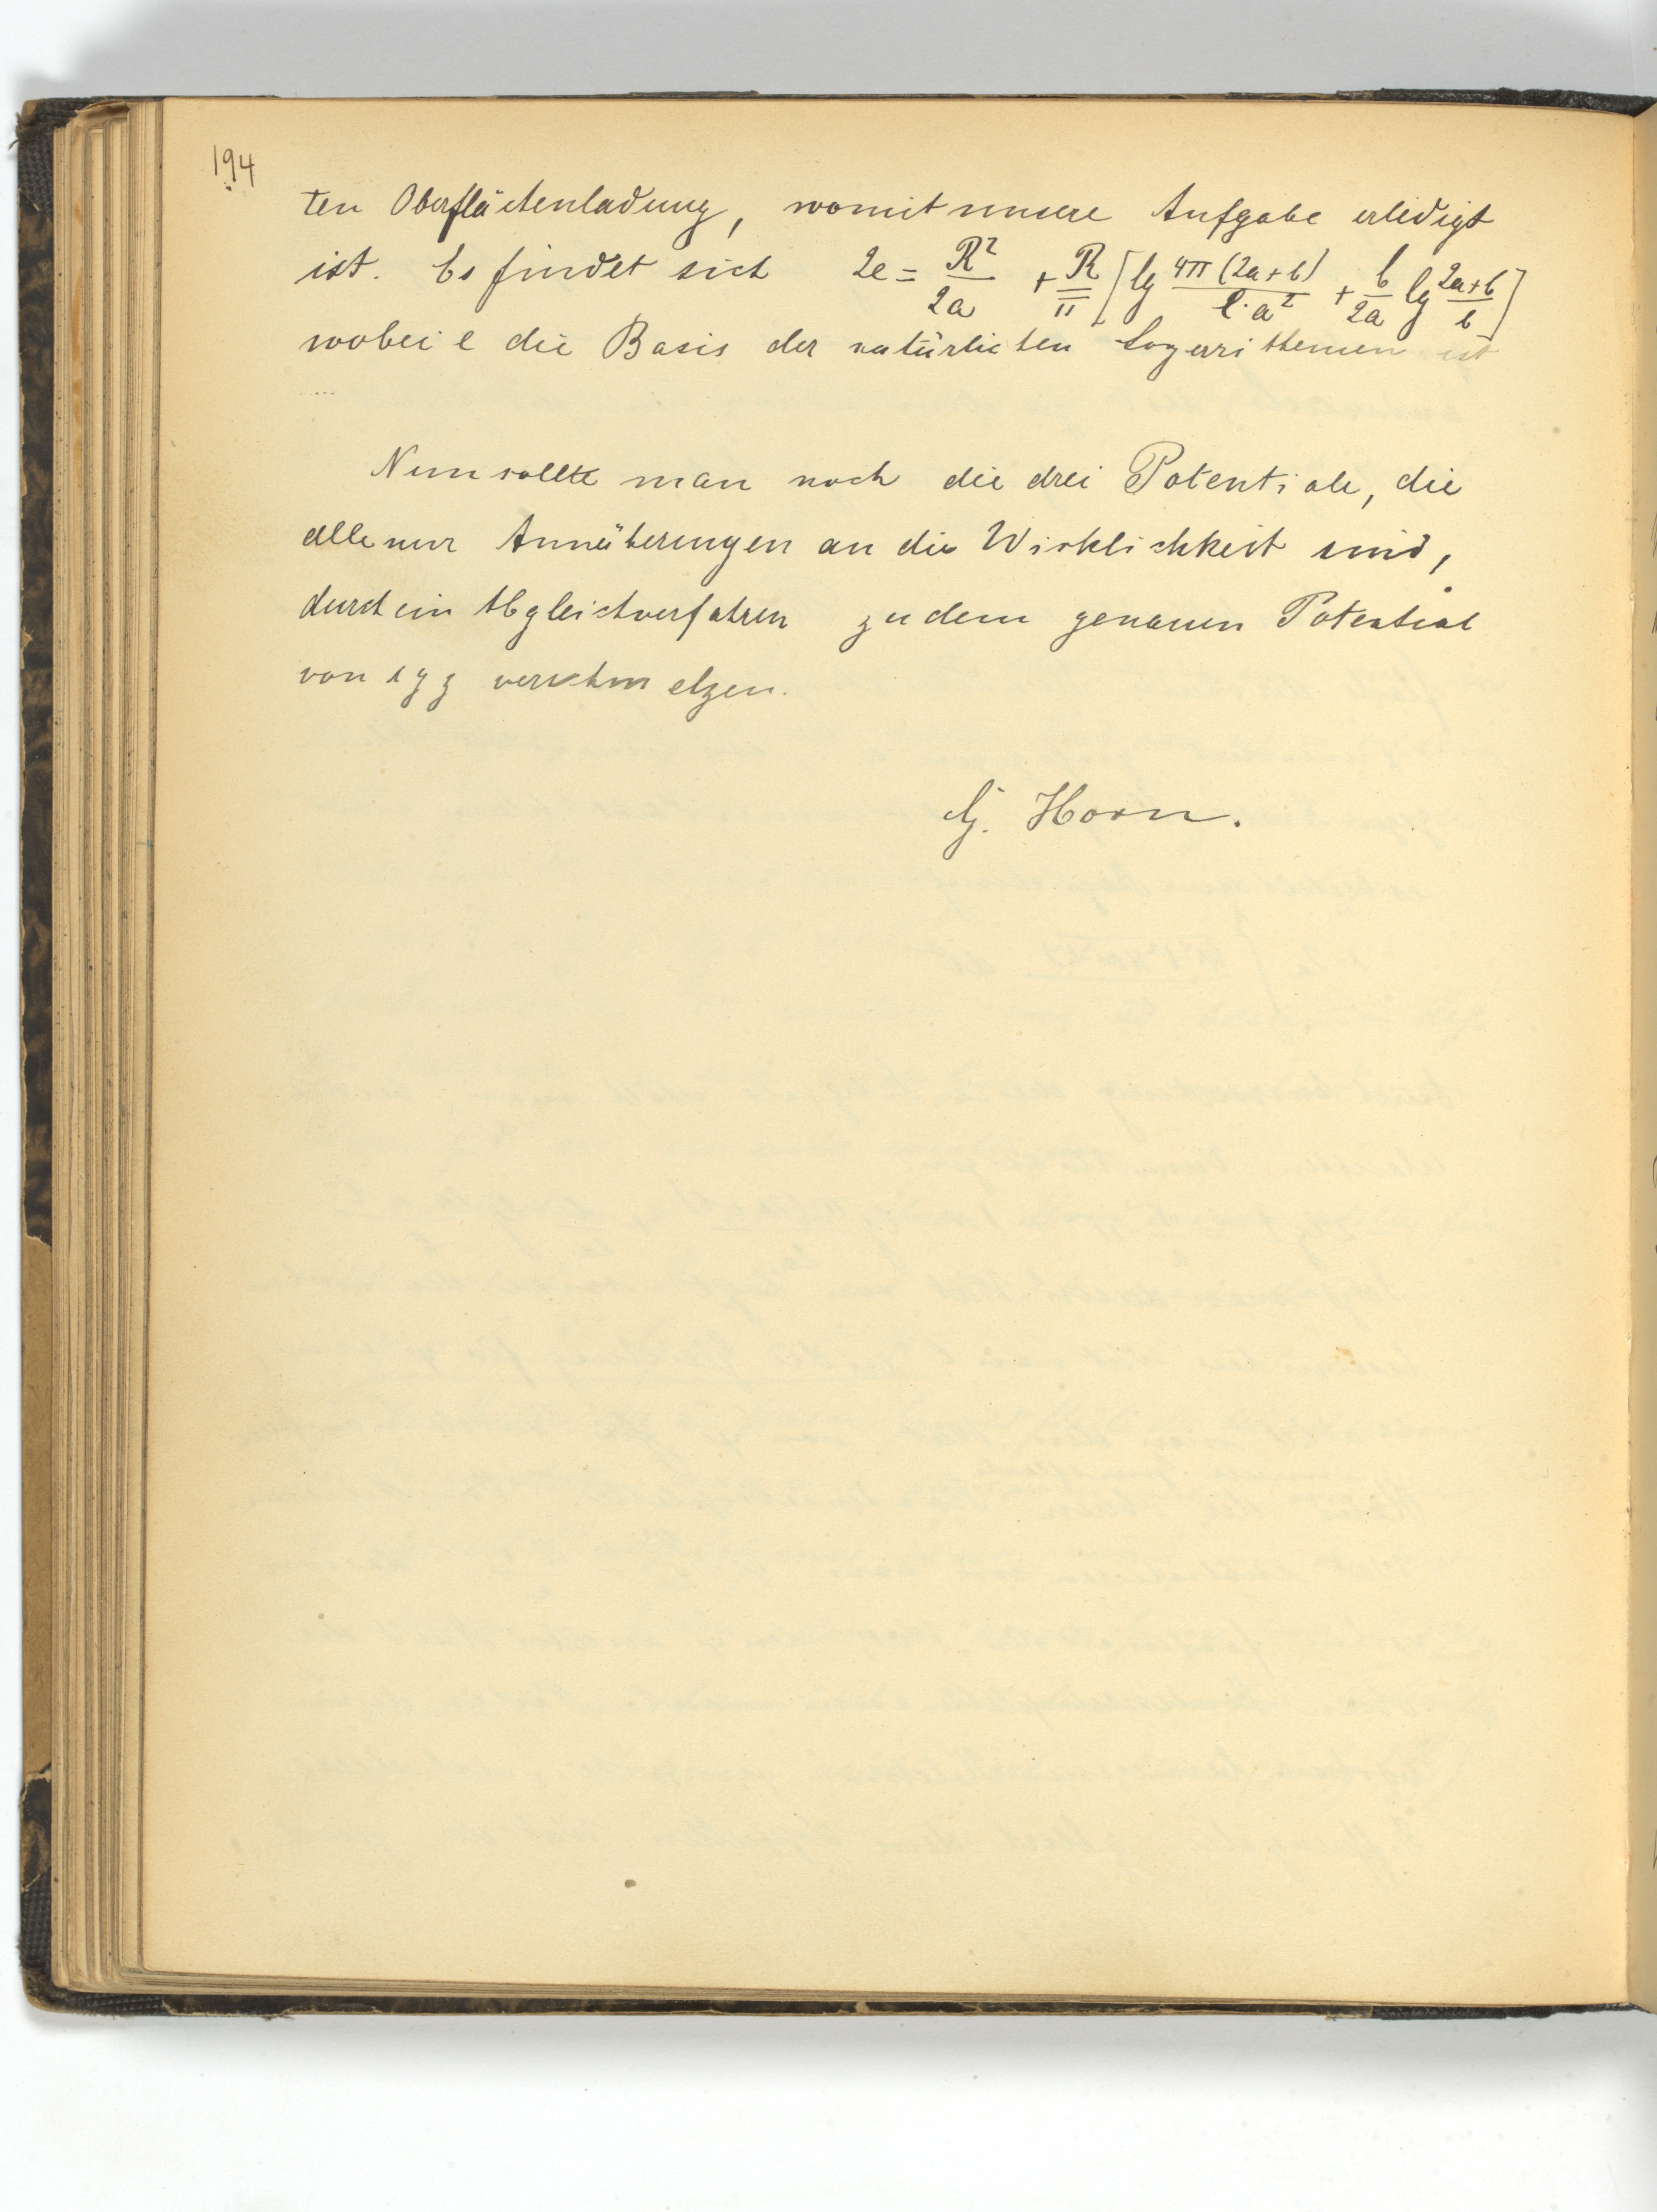 194
ten Oberflächenladung, womit unsere Aufgabe erledigt
ist. Es findet sich 2e = R²/2a + R/π [lg 4π(2a+b)/e·a² + b/2a lg 2a+b/b]
wobei e die Basis der natürlichen Logarithemen ist
Nun sollte man noch die drei Potentiale, die
alle nur Annäherungen an die Wirklichkeit sind,
durch ein Abgleichverfahren zu dem genauen Potential
von verschmelzen.
G. Horn.